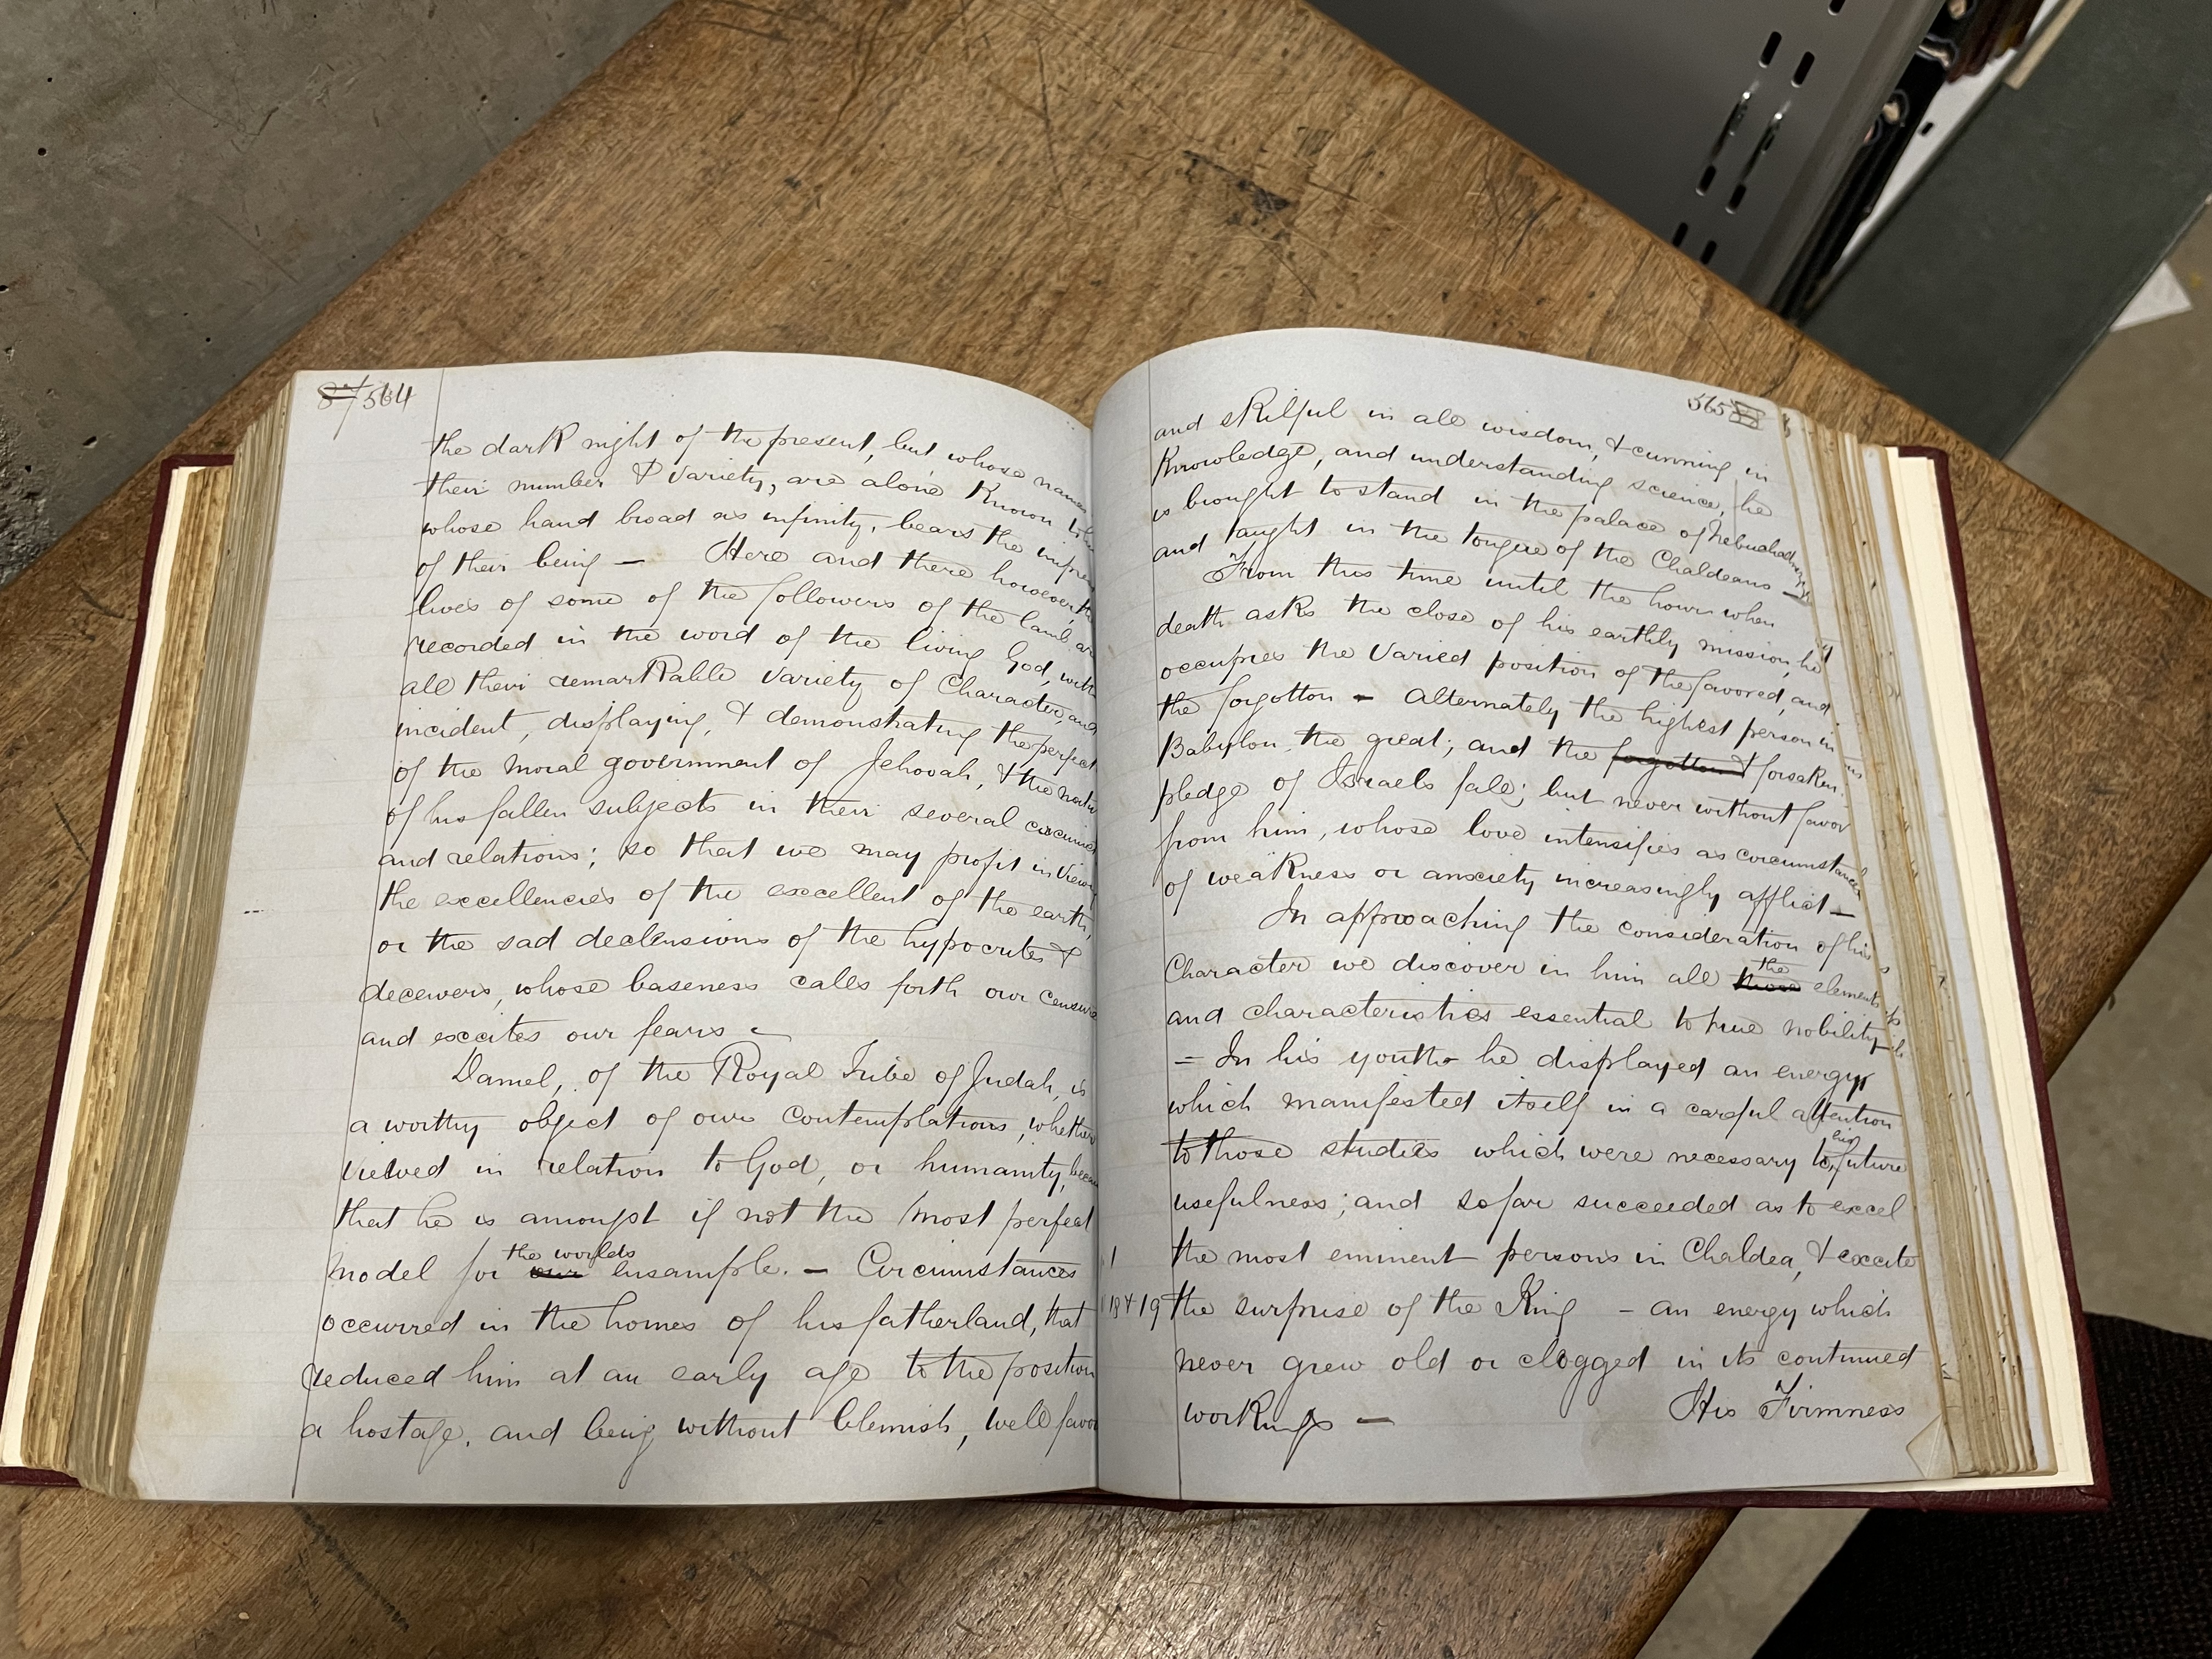 87 564
the dark night of the present, but whose names
their number & variety, are alone Known to
whose hand broad as infinity, bears the impres
of their being — Here and there however, the
lives of some of the followers of the lamb are
recorded in the word of the living God, with
all their remarkable variety of Character, and
incident, displaying, & demonstrating the perfect
of the moral government of Jehovah, & the natu
of his fallen subjects in their several circumst
and relations; so that we may profit in viewing
the excellencies of the excellent of the earth,
or the sad declensions of the hypocrites &
deceivers, whose baseness calls forth our censure
and excites our fears —
Daniel, of the Royal Tribe of Judah, is
a worthy object of our contemplations, whether
viewed in relation to God, or humanity, becau
that he is amongst if not the most perfect
the worlds
model for our ensample. — Circumstances
occurred in the homes of his fatherland, that
reduced him at an early age to the position
a hostage, and being without blemish, well favor
565
and skilful in all wisdom, & cunning in
Knowledge, and understanding science, he
is brought to stand in the palace of Nebuchadnezzar
and taught in the tongue of the Chaldeans —
From this time until the hour when
death asks the close of his earthly mission, he
occupies the varied position of the favored, and
the forgotton — alternately the highest person in
Babylon, the great; and the forgotton & forsaken
pledge of Israels fall; but never without favor
from him, whose love intensifies as circumstances
of weakness or anxiety increasingly afflict —
In approaching the consideration of his
the
Character we discover in him all those elements
and characteristics essential to true nobility —
= In his youth he displayed an energy
which manifested itself in a careful attention
his
to those studies which were necessary to future
usefulness; and so far succeeded as to excel
the most eminent persons in Chaldea, & excite
18 & 19 the surprise of the King — an energy which
never grew old or clogged in its continued
workings — His Firmness